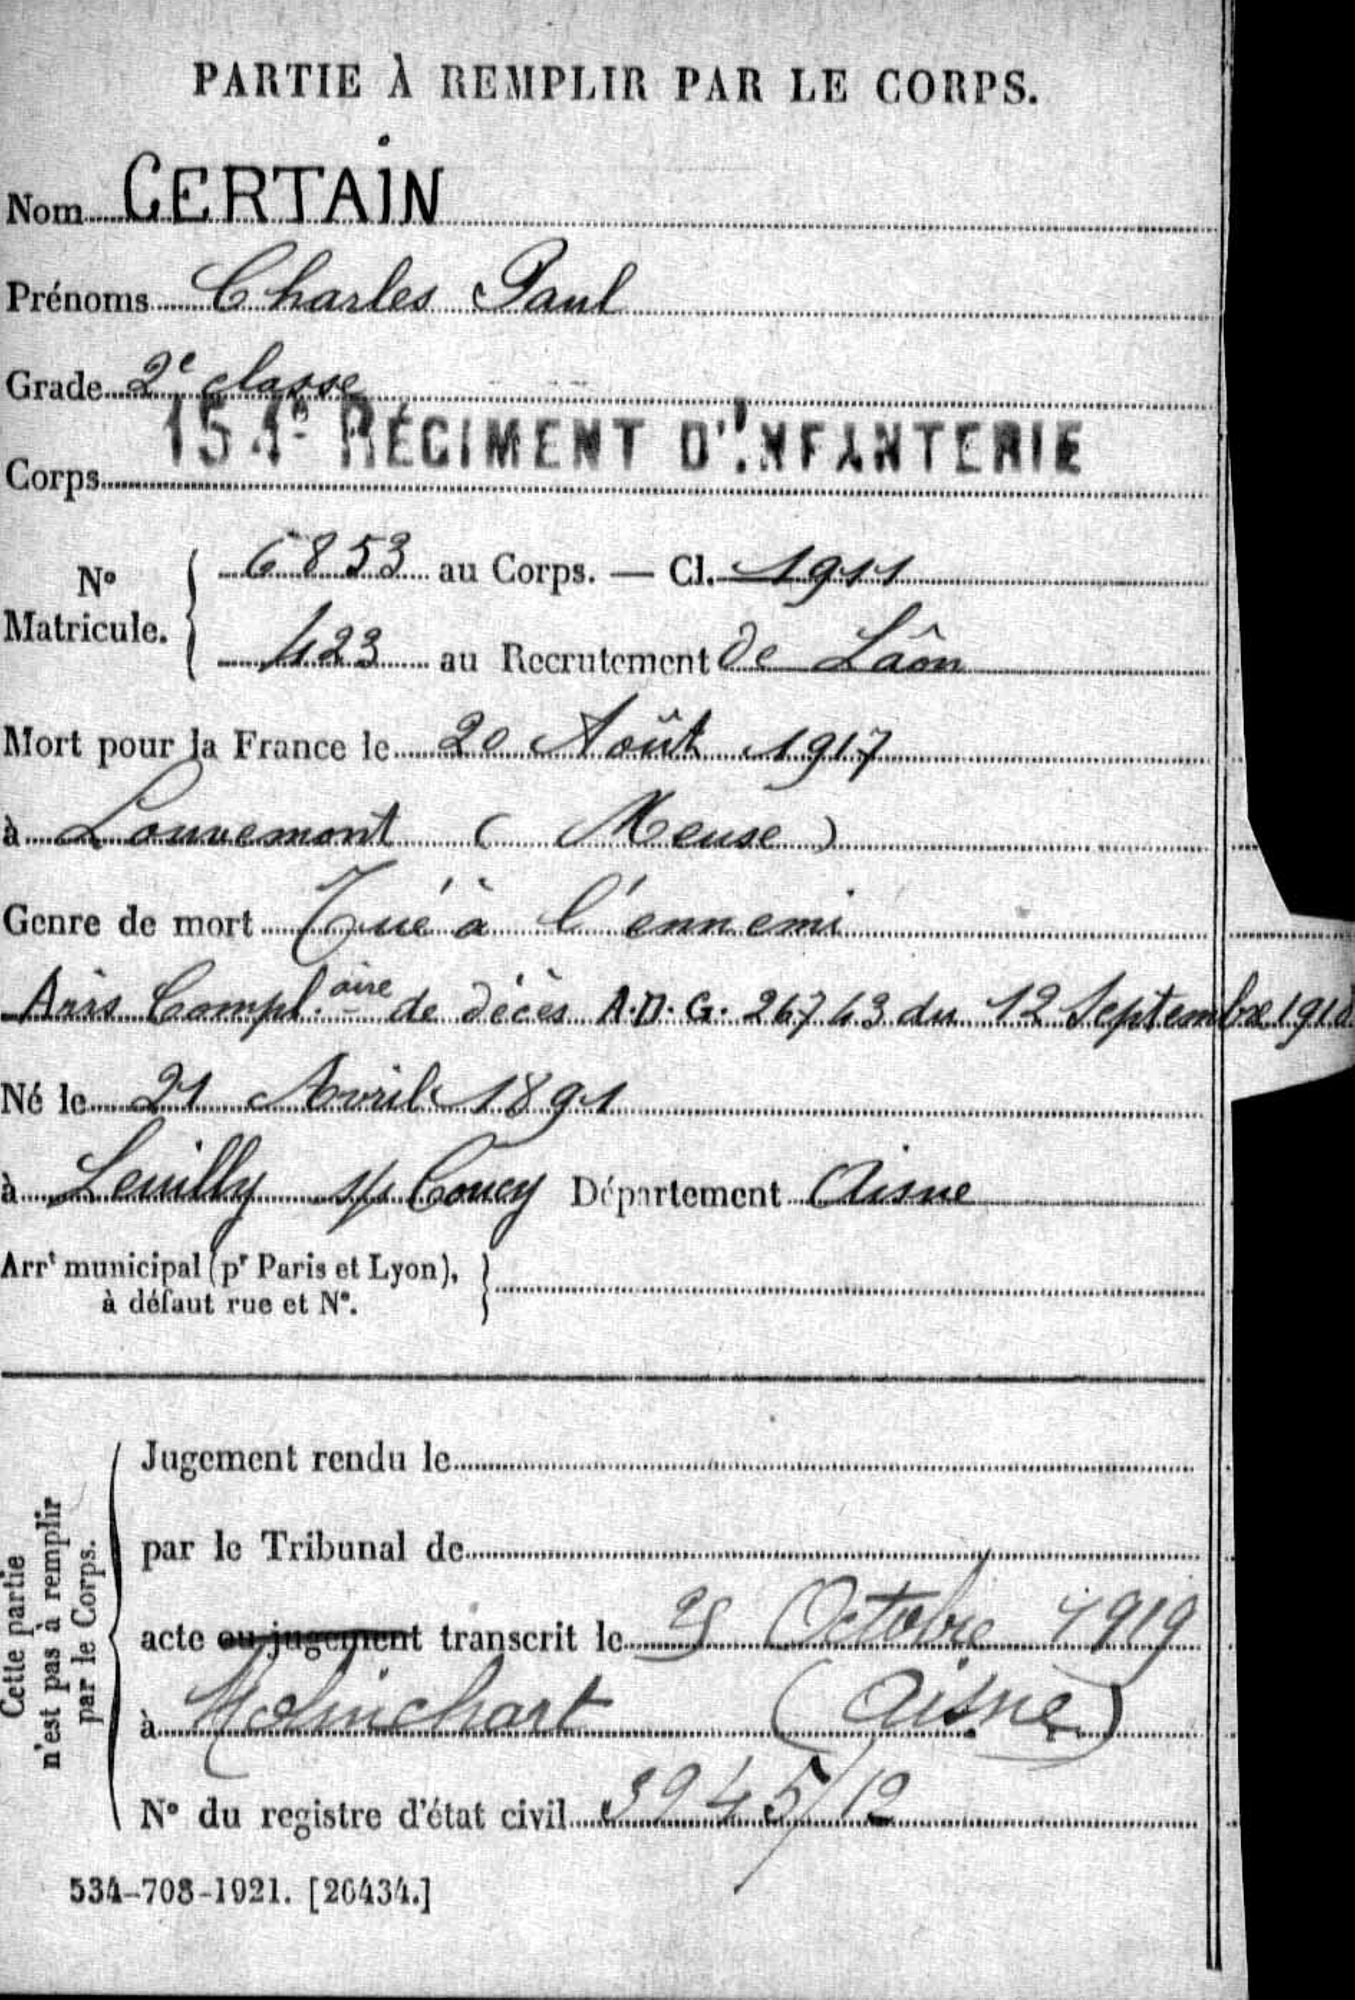 PARTIE À REMPLIR PAR LE CORPS.
Nom CERTAIN
Prénoms Charles Paul
Grade 2e classe
Corps 154e RÉGIMENT D'INFANTERIE
N° Matricule. 6853 au Corps. — Cl. 1911
423 au Recrutement de Lâon
Mort pour la France le 20 Août 1917
à Louvemont (Meuse)
Genre de mort Tué à l'ennemi
Avis Compl.aire de décès A.D.G. 26743 du 12 Septembre 1918
Né le 21 Avril 1891
à Leuilly s/s Coucy Département Aisne
Arrt municipal (pr Paris et Lyon),
à défaut rue et N°.
Cette partie
n'est pas à remplir
par le Corps.
Jugement rendu le
par le Tribunal de
acte ou jugement transcrit le Octobre 1919
à Molinchart (Aisne)
N° du registre d'état civil 3945/12
534-708-1921. [26434.]